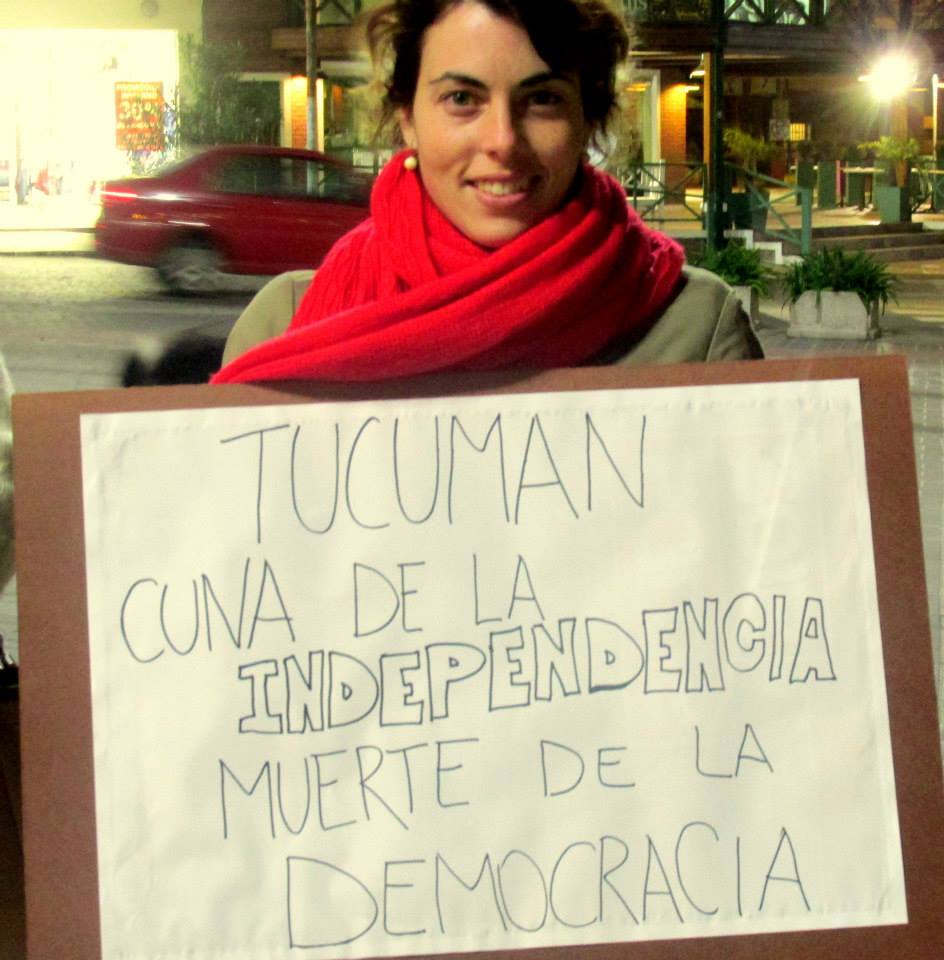 TUCUMAN
CUNA DE LA
INDEPENDENCIA
MUERTE DE LA
DEMOCRACIA